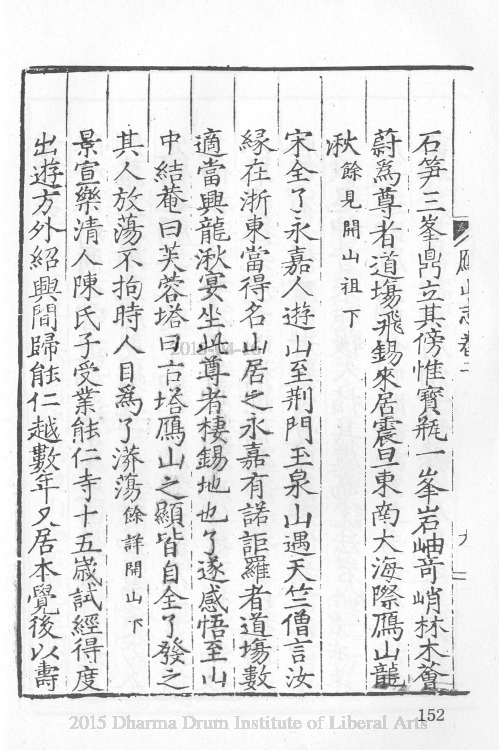 鴈山志卷
石笋三峯鼎立其傍惟寶瓶一峯岩岫竒峭林木薈
蔚爲尊者道塲飛錫來居震旦東南大海際鴈山龍
湫餘見開山祖下
宋全了永嘉人遊山至荆門玉泉山遇天竺僧言汝
縁在浙東當得名山居之永嘉有諾詎羅者道塲數
適當興龍湫宴坐此尊者棲錫地也了遂感悟至山
中結菴曰芙蓉塔曰古塔鴈山之顯皆自全了發之
其人放蕩不拘時人目爲了漭蕩餘詳開山下
景宣樂清人陳氏子受業能仁寺十五歲試經得度
出遊方外紹興間歸能仁越數年又居本覺後以壽
152
2015 Dharma Drum Institute of Liberal Arts